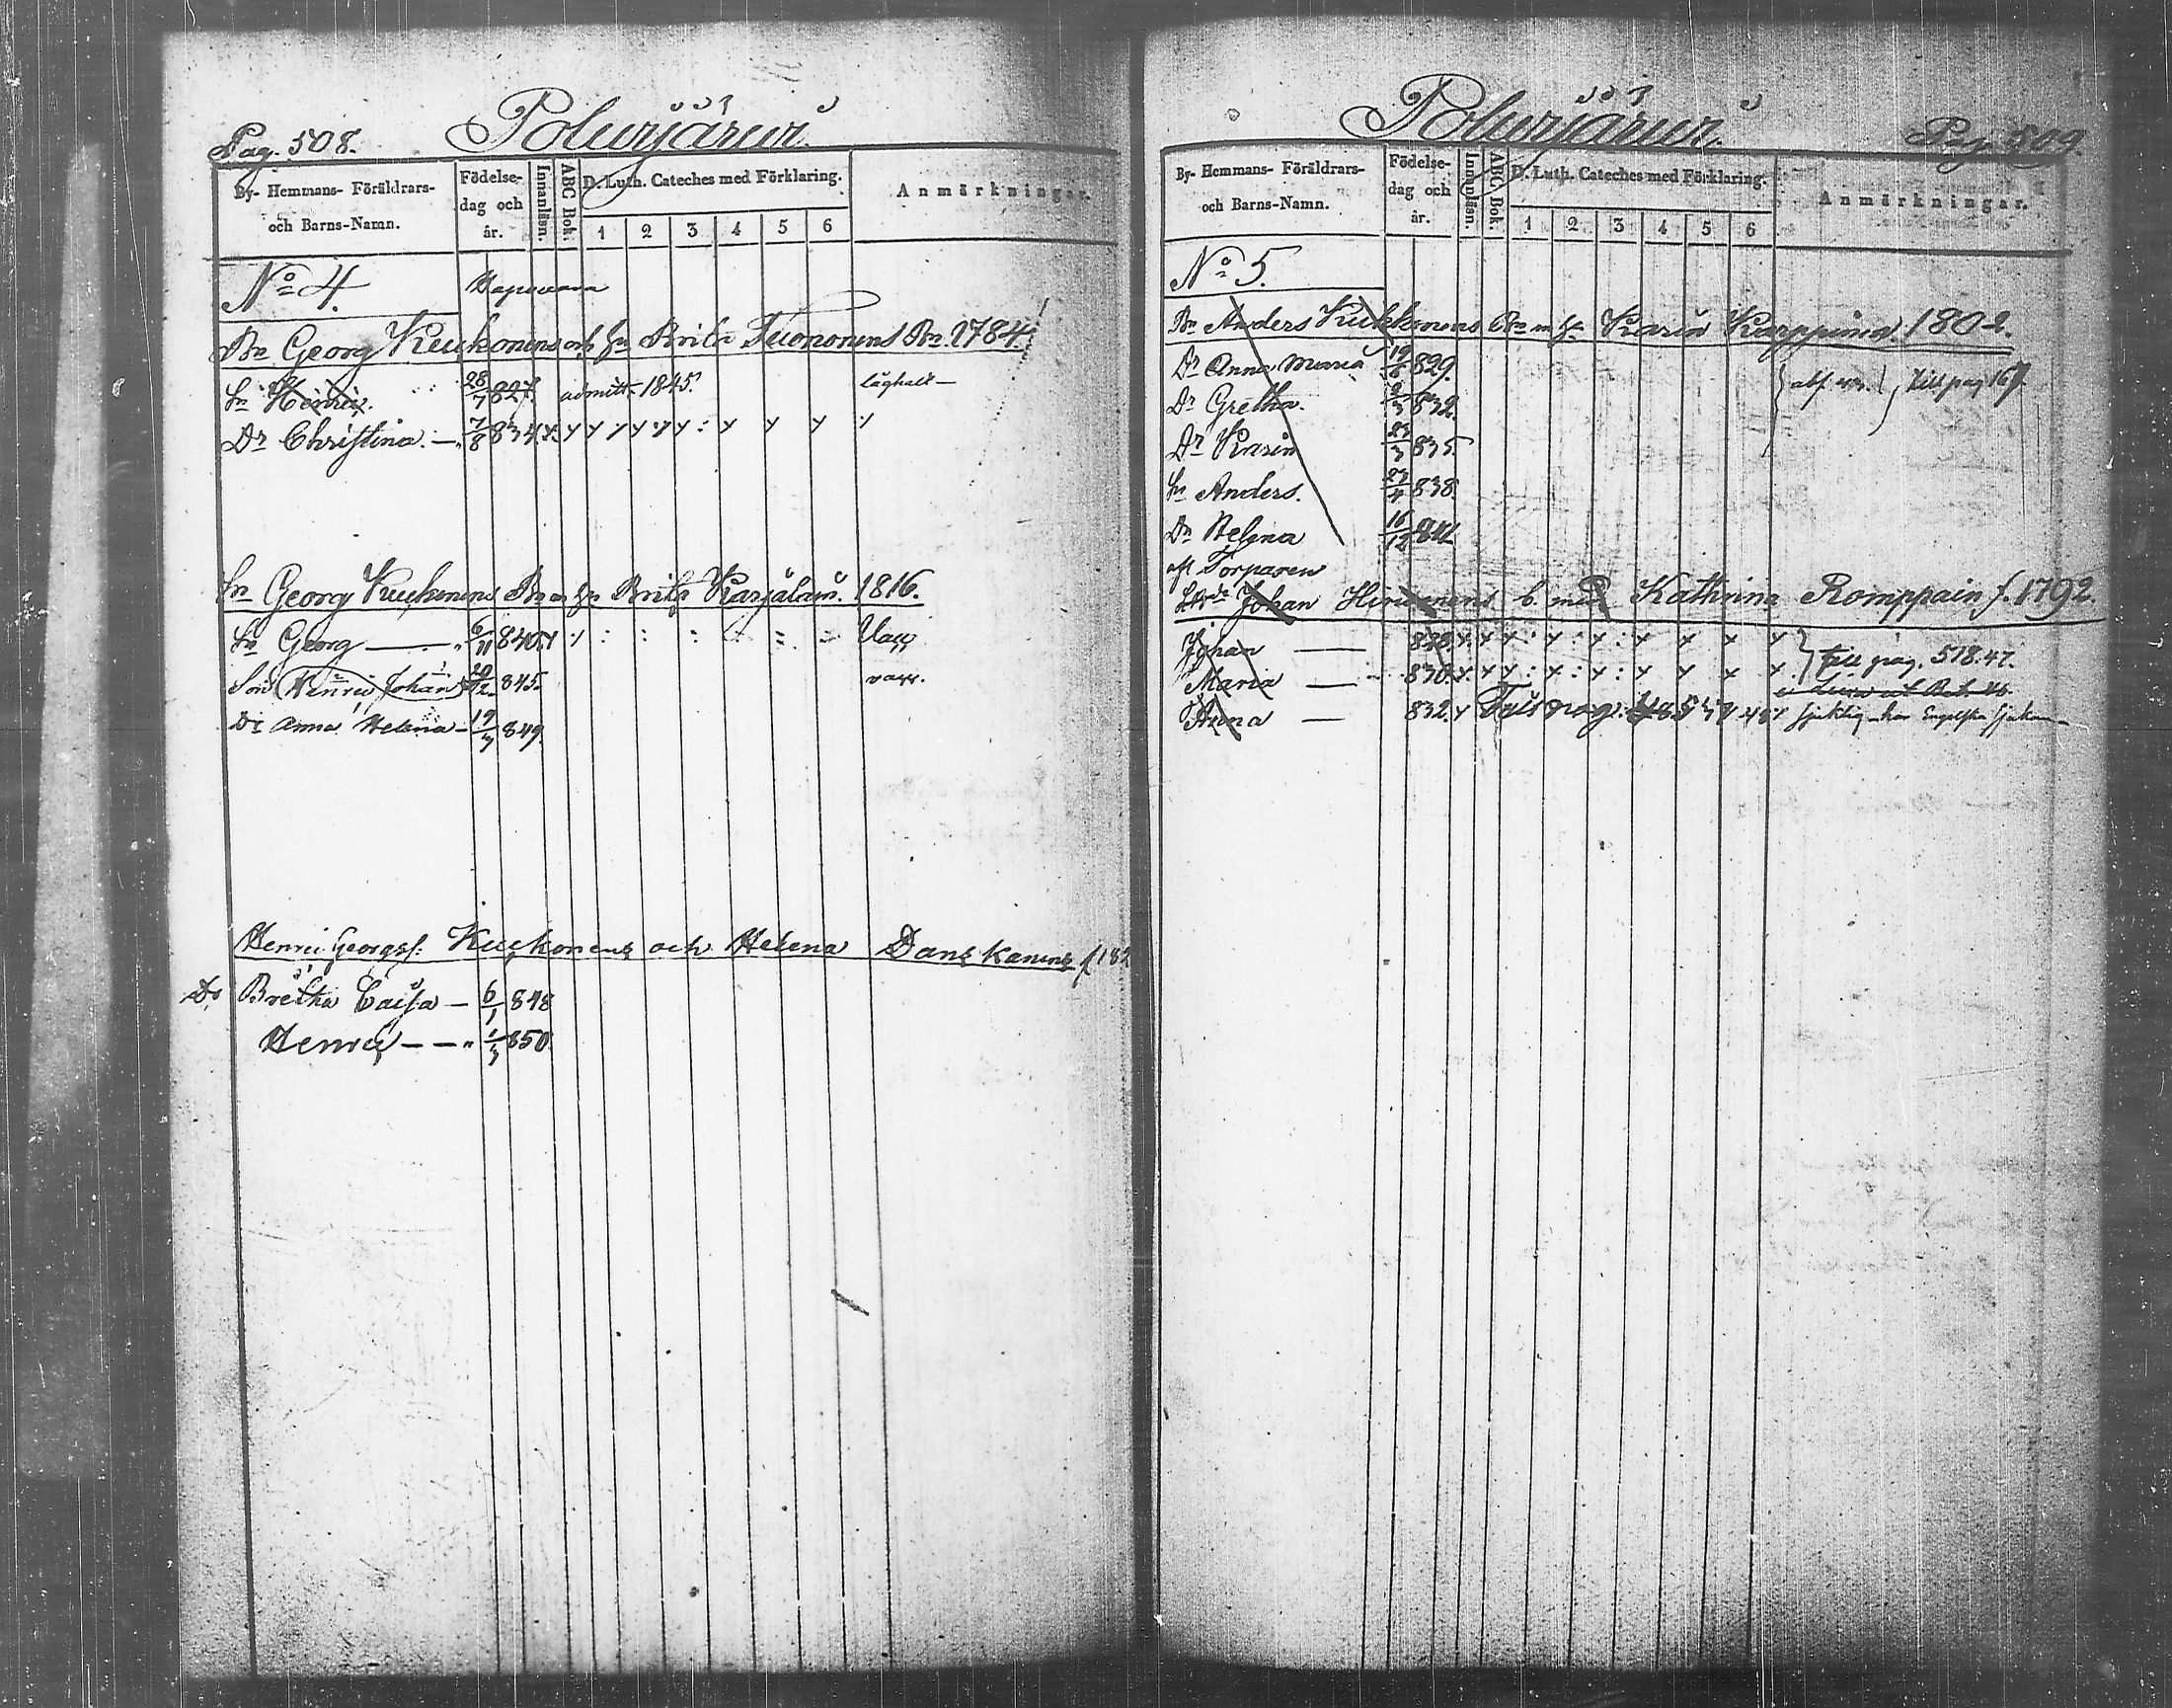 Pag. 508.
Polvijärvi.
By- Hemmans- Föräldrars-
och Barns-Namn.
Födelse-
dag och
år.
Innanläsn.
ABC Bok.
D. Luth. Cateches med Förklaring.
1 2 3 4 5 6
Anmärkningar.
No 4.
Bn Georg Kuckonens och Brita Tuononens 1784.
Sn Henric. 28/7 827. admitt. 1845. låghalt —
Dr Christina. — 7/8 834
Sn Georg Kuckonens Brita Karjalain. 1816.
Sn Georg — 6/11 840
Son Henric Johan 845. vacc.
Dr Anna Helena — 19/3 849.
Henric Georgss. Kuckonens och Helena Danskanens f 182
Dr Bretha Caisa — 6/1 848
Henric — — 1/3 850.
Polvijärvi.
Pag. 509.
By- Hemmans- Föräldrars-
och Barns-Namn.
Födelse-
dag och
år.
Innanläsn.
ABC Bok.
D. Luth. Cateches med Förklaring.
1 2 3 4 5 6
Anmärkningar.
No 5.
Bn Anders Kuckonens Karin Karppinen 1802.
Dr Anna Maria 829. till pag 167
Dr Gretha. 832
Dr Karin 23/3 835
Sn Anders. 23/4 838
Dr Helena 16/12
afl Torparen
Johan Hirvonens b. med Kathrina Romppain f. 1792.
Johan — 828. till pag. 518. 47.
Maria — 830.
Anna — 832. sjuklig har Engelska sjukan —